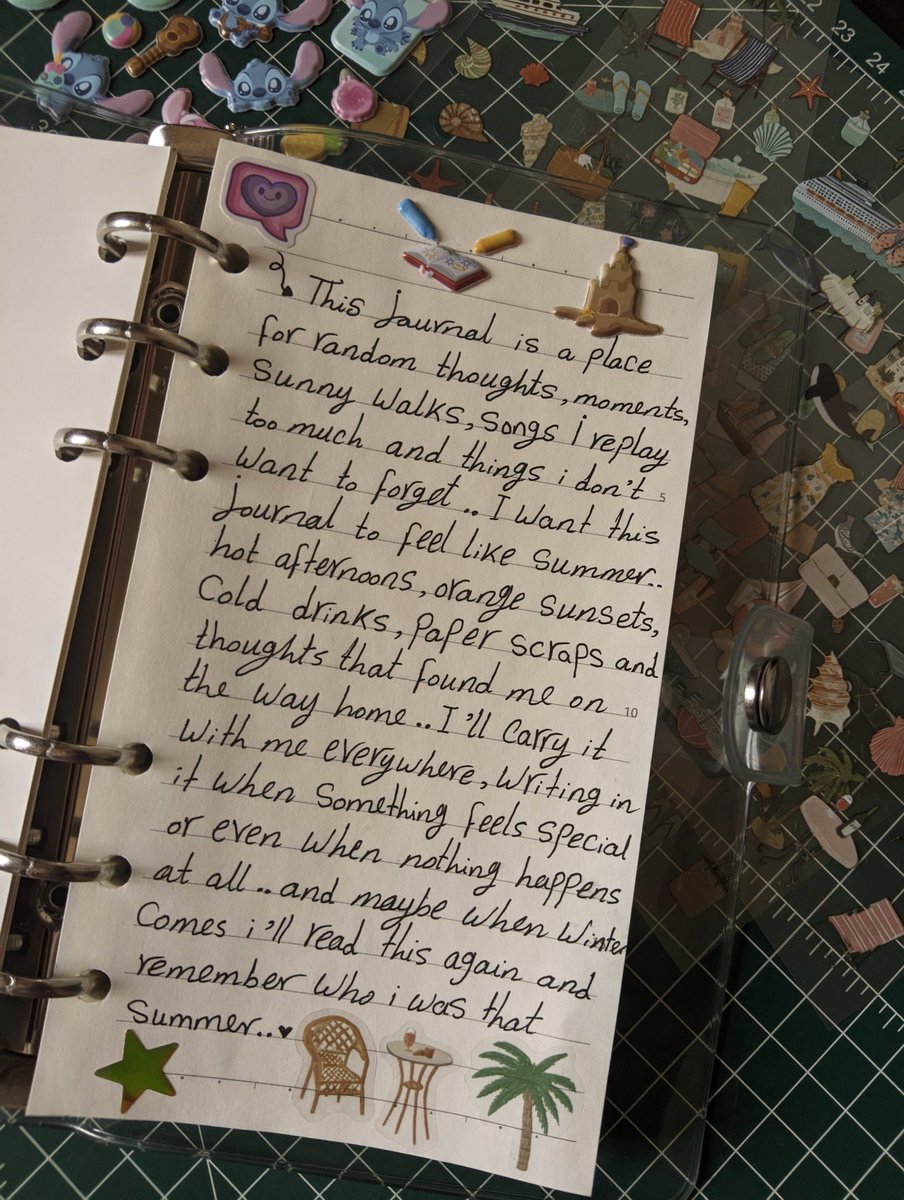 This journal is a place
for random thoughts, moments,
Sunny walks, songs i replay
too much and things i don't
want to forget.. I want this
journal to feel like summer..
hot afternoons, orange sunsets,
Cold drinks, paper scraps and
thoughts that found me on
the way home.. I'll carry it
with me everywhere, writing in
it when something feels special
or even when nothing happens
at all.. and maybe when winter
Comes i'll read this again and
remember who i was that
Summer..♥
5
10
23
24